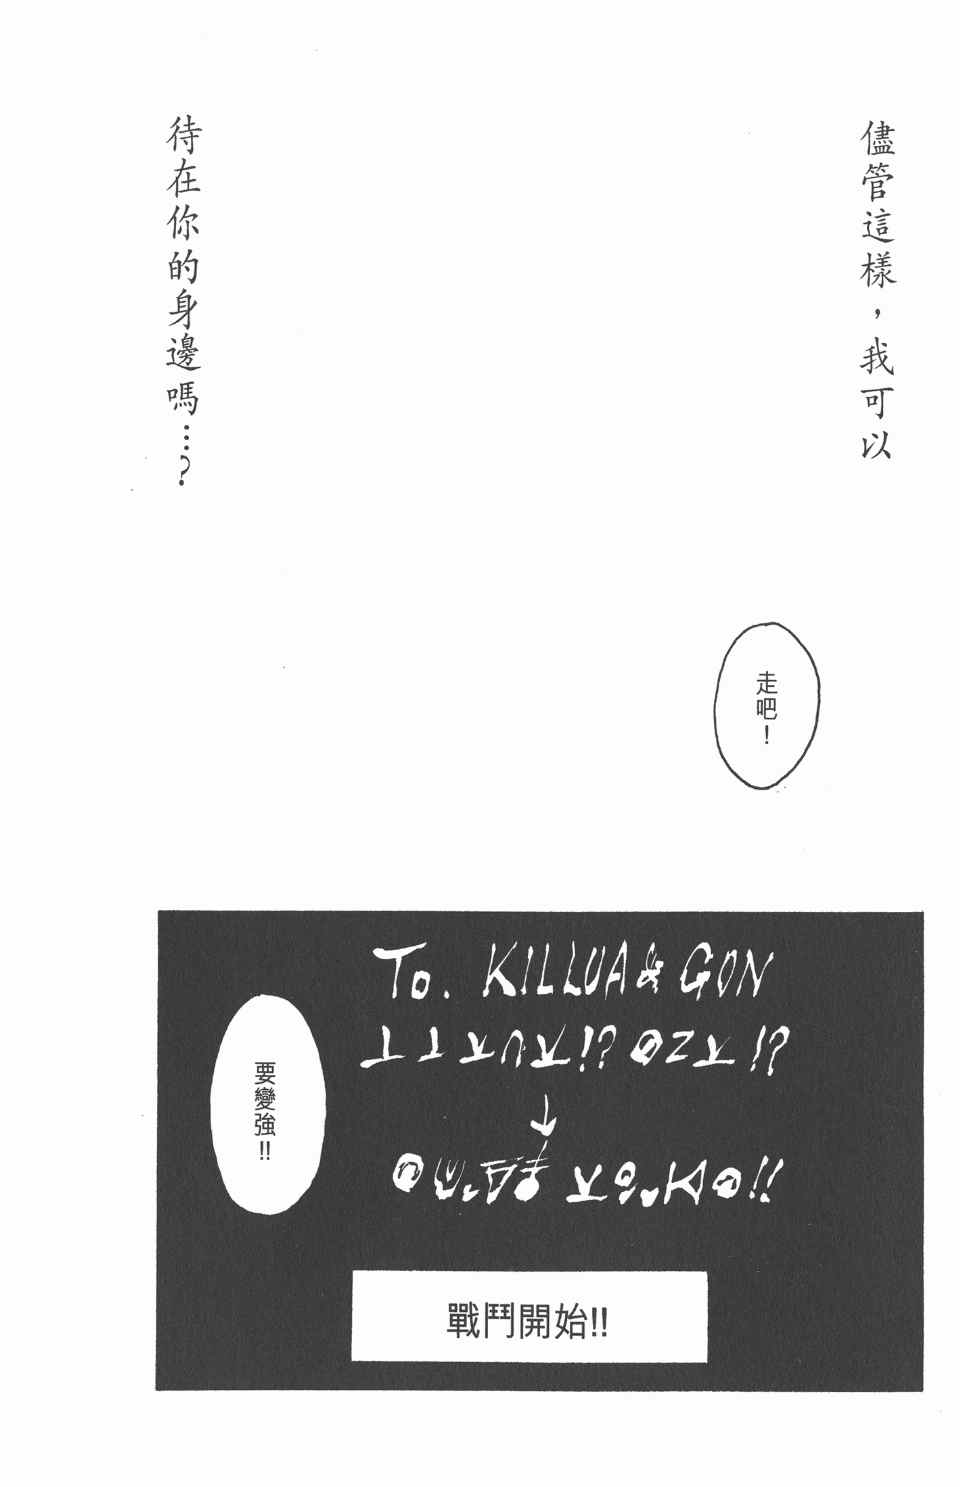 儘管這樣，我可以
待在你的身邊嗎…？
走吧！
To. KILLUA & GON
要變強!!
戰鬥開始!!